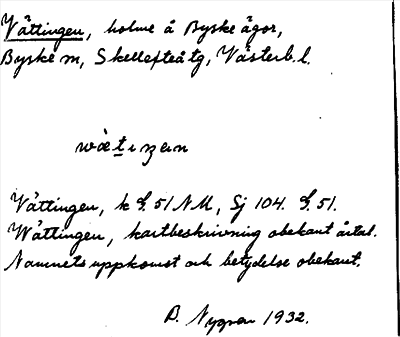 Vättingen, holme å Byske ägor,
Byske m, Skellefteå tg, Västerb. l.
Vättingen, k f. 51 NM, Sj 104. f. 51.
Wättingen, kartbeskrivning obekant årtal.
Namnets uppkomst och betydelse obekant.
1932.